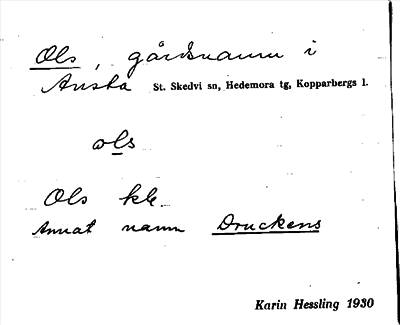 Ols, gårdsnamn i
Ansta St. Skedvi sn, Hedemora tg, Kopparbergs l.
ols
Ols kb.
Annat namn Druckens
Karin Hessling 1930